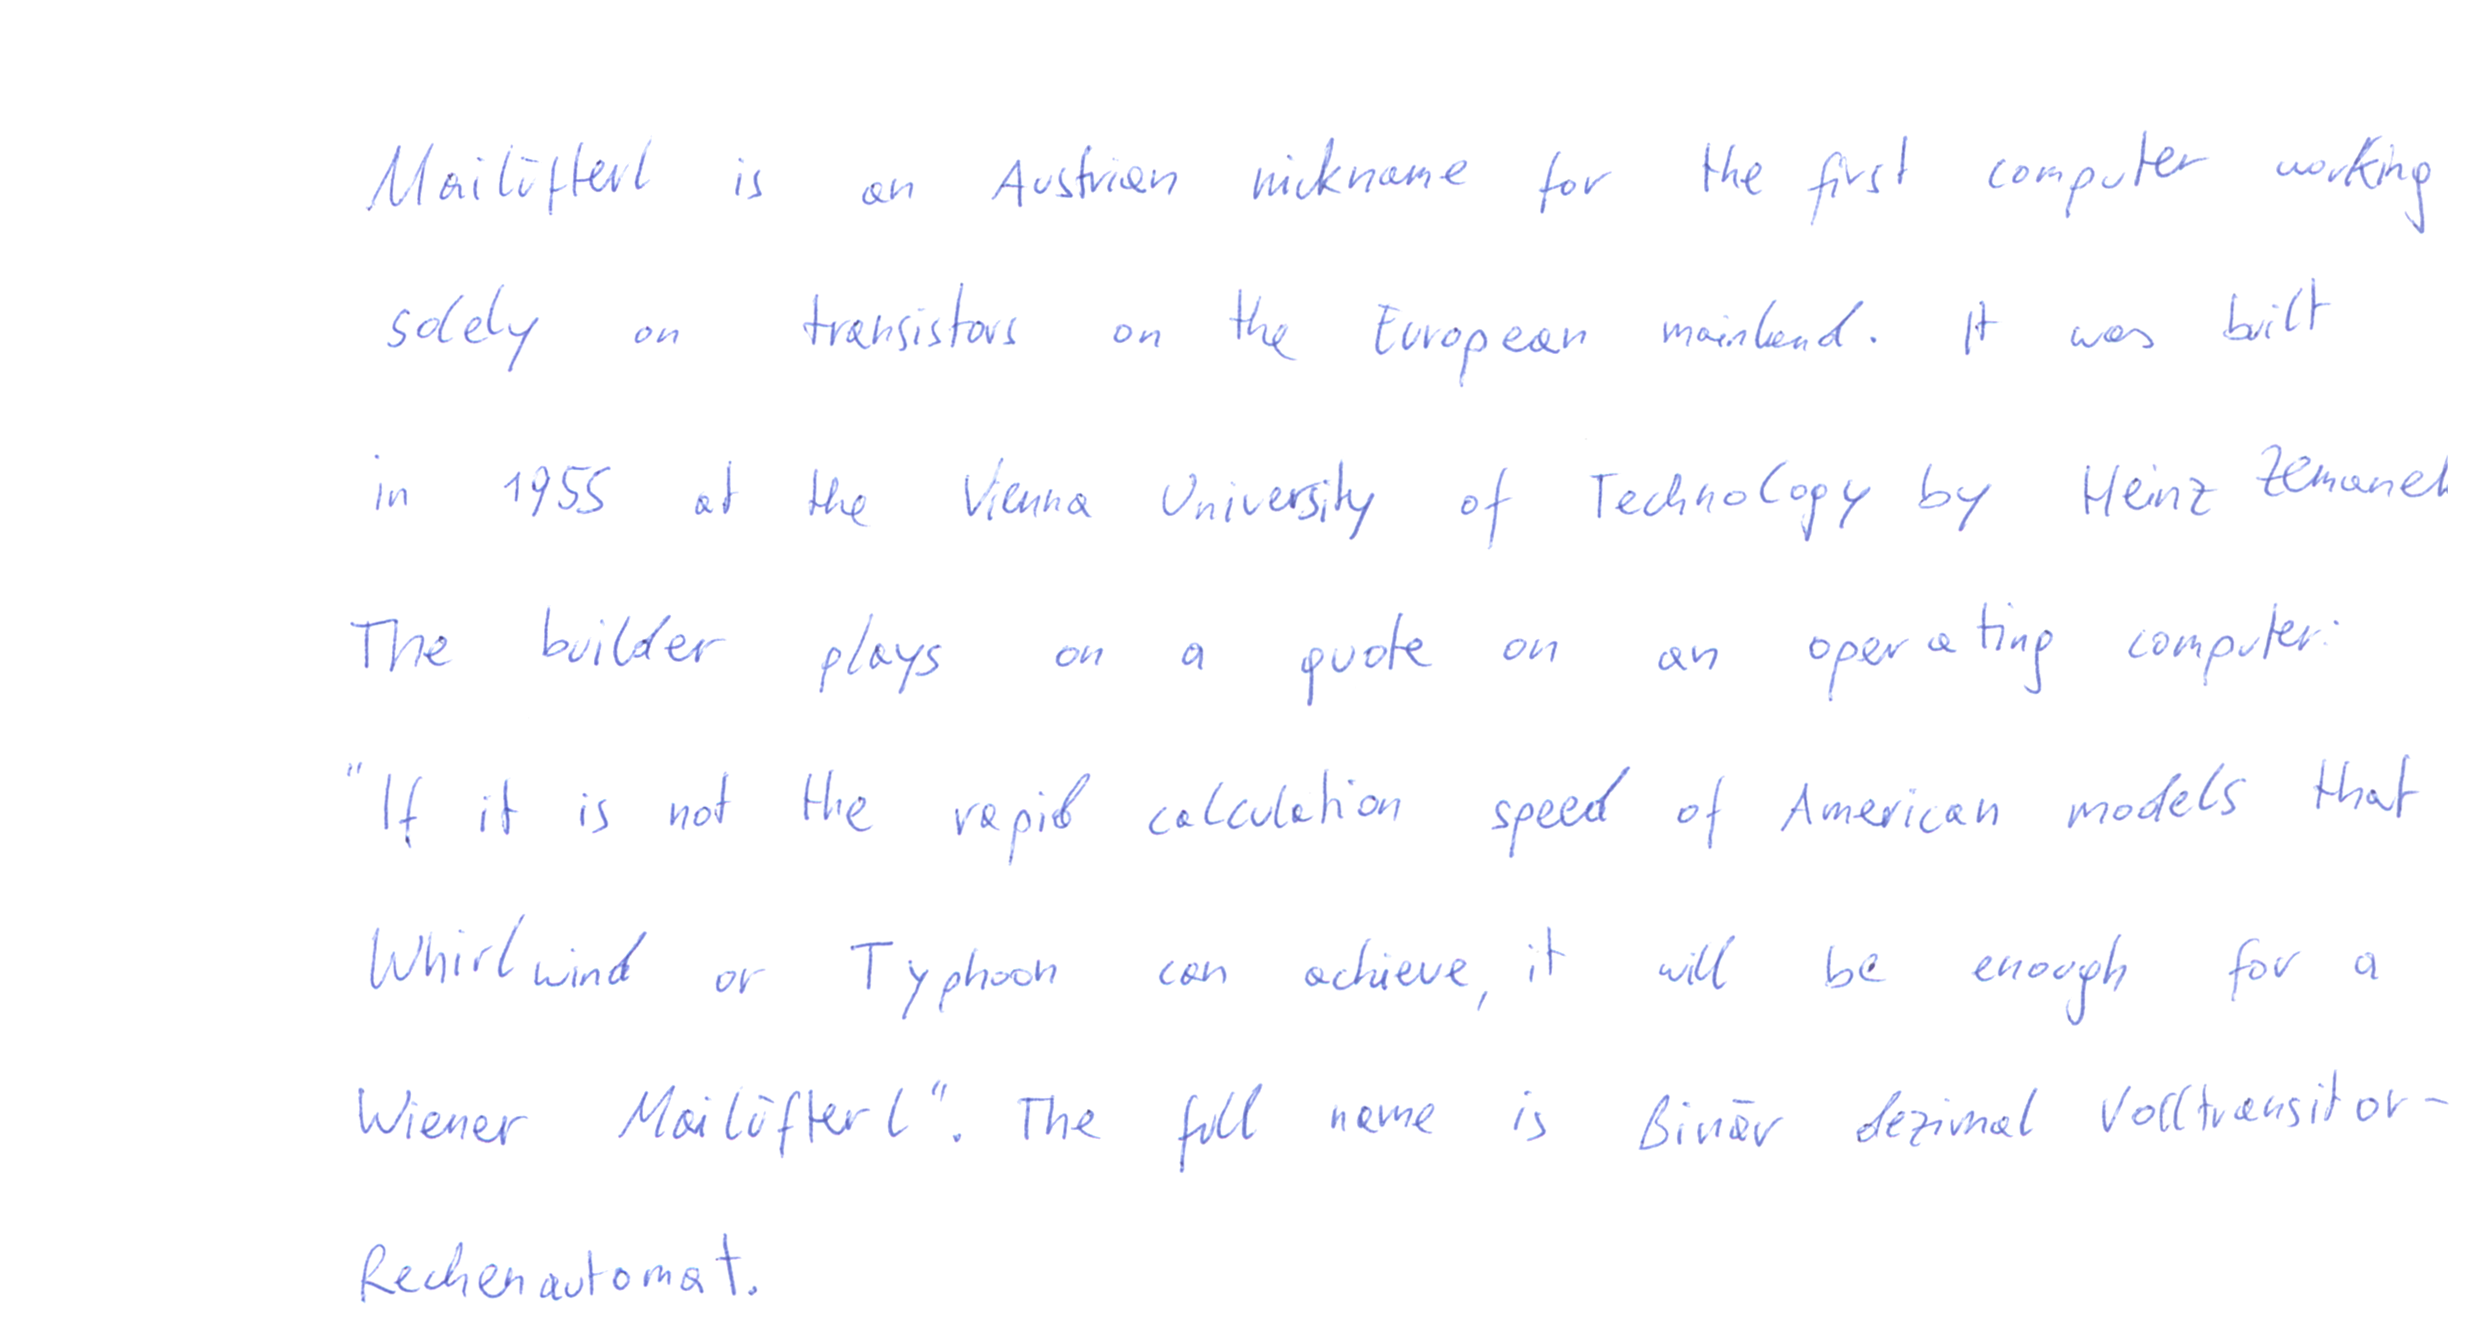 Mailüfterl is an Austrian nickname for the first computer working
solely on transistors on the European mainland. It was built
in 1955 at the Vienna University of Technology by Heinz Zemanek
The builder plays on a quote on an operating computer:
"If it is not the rapid calculation speed of American models that
Whirlwind or Typhoon can achieve, it will be enough for a
Wiener Mailüfterl". The full name is Binär dezimal Volltransitor-
Rechenautomat.